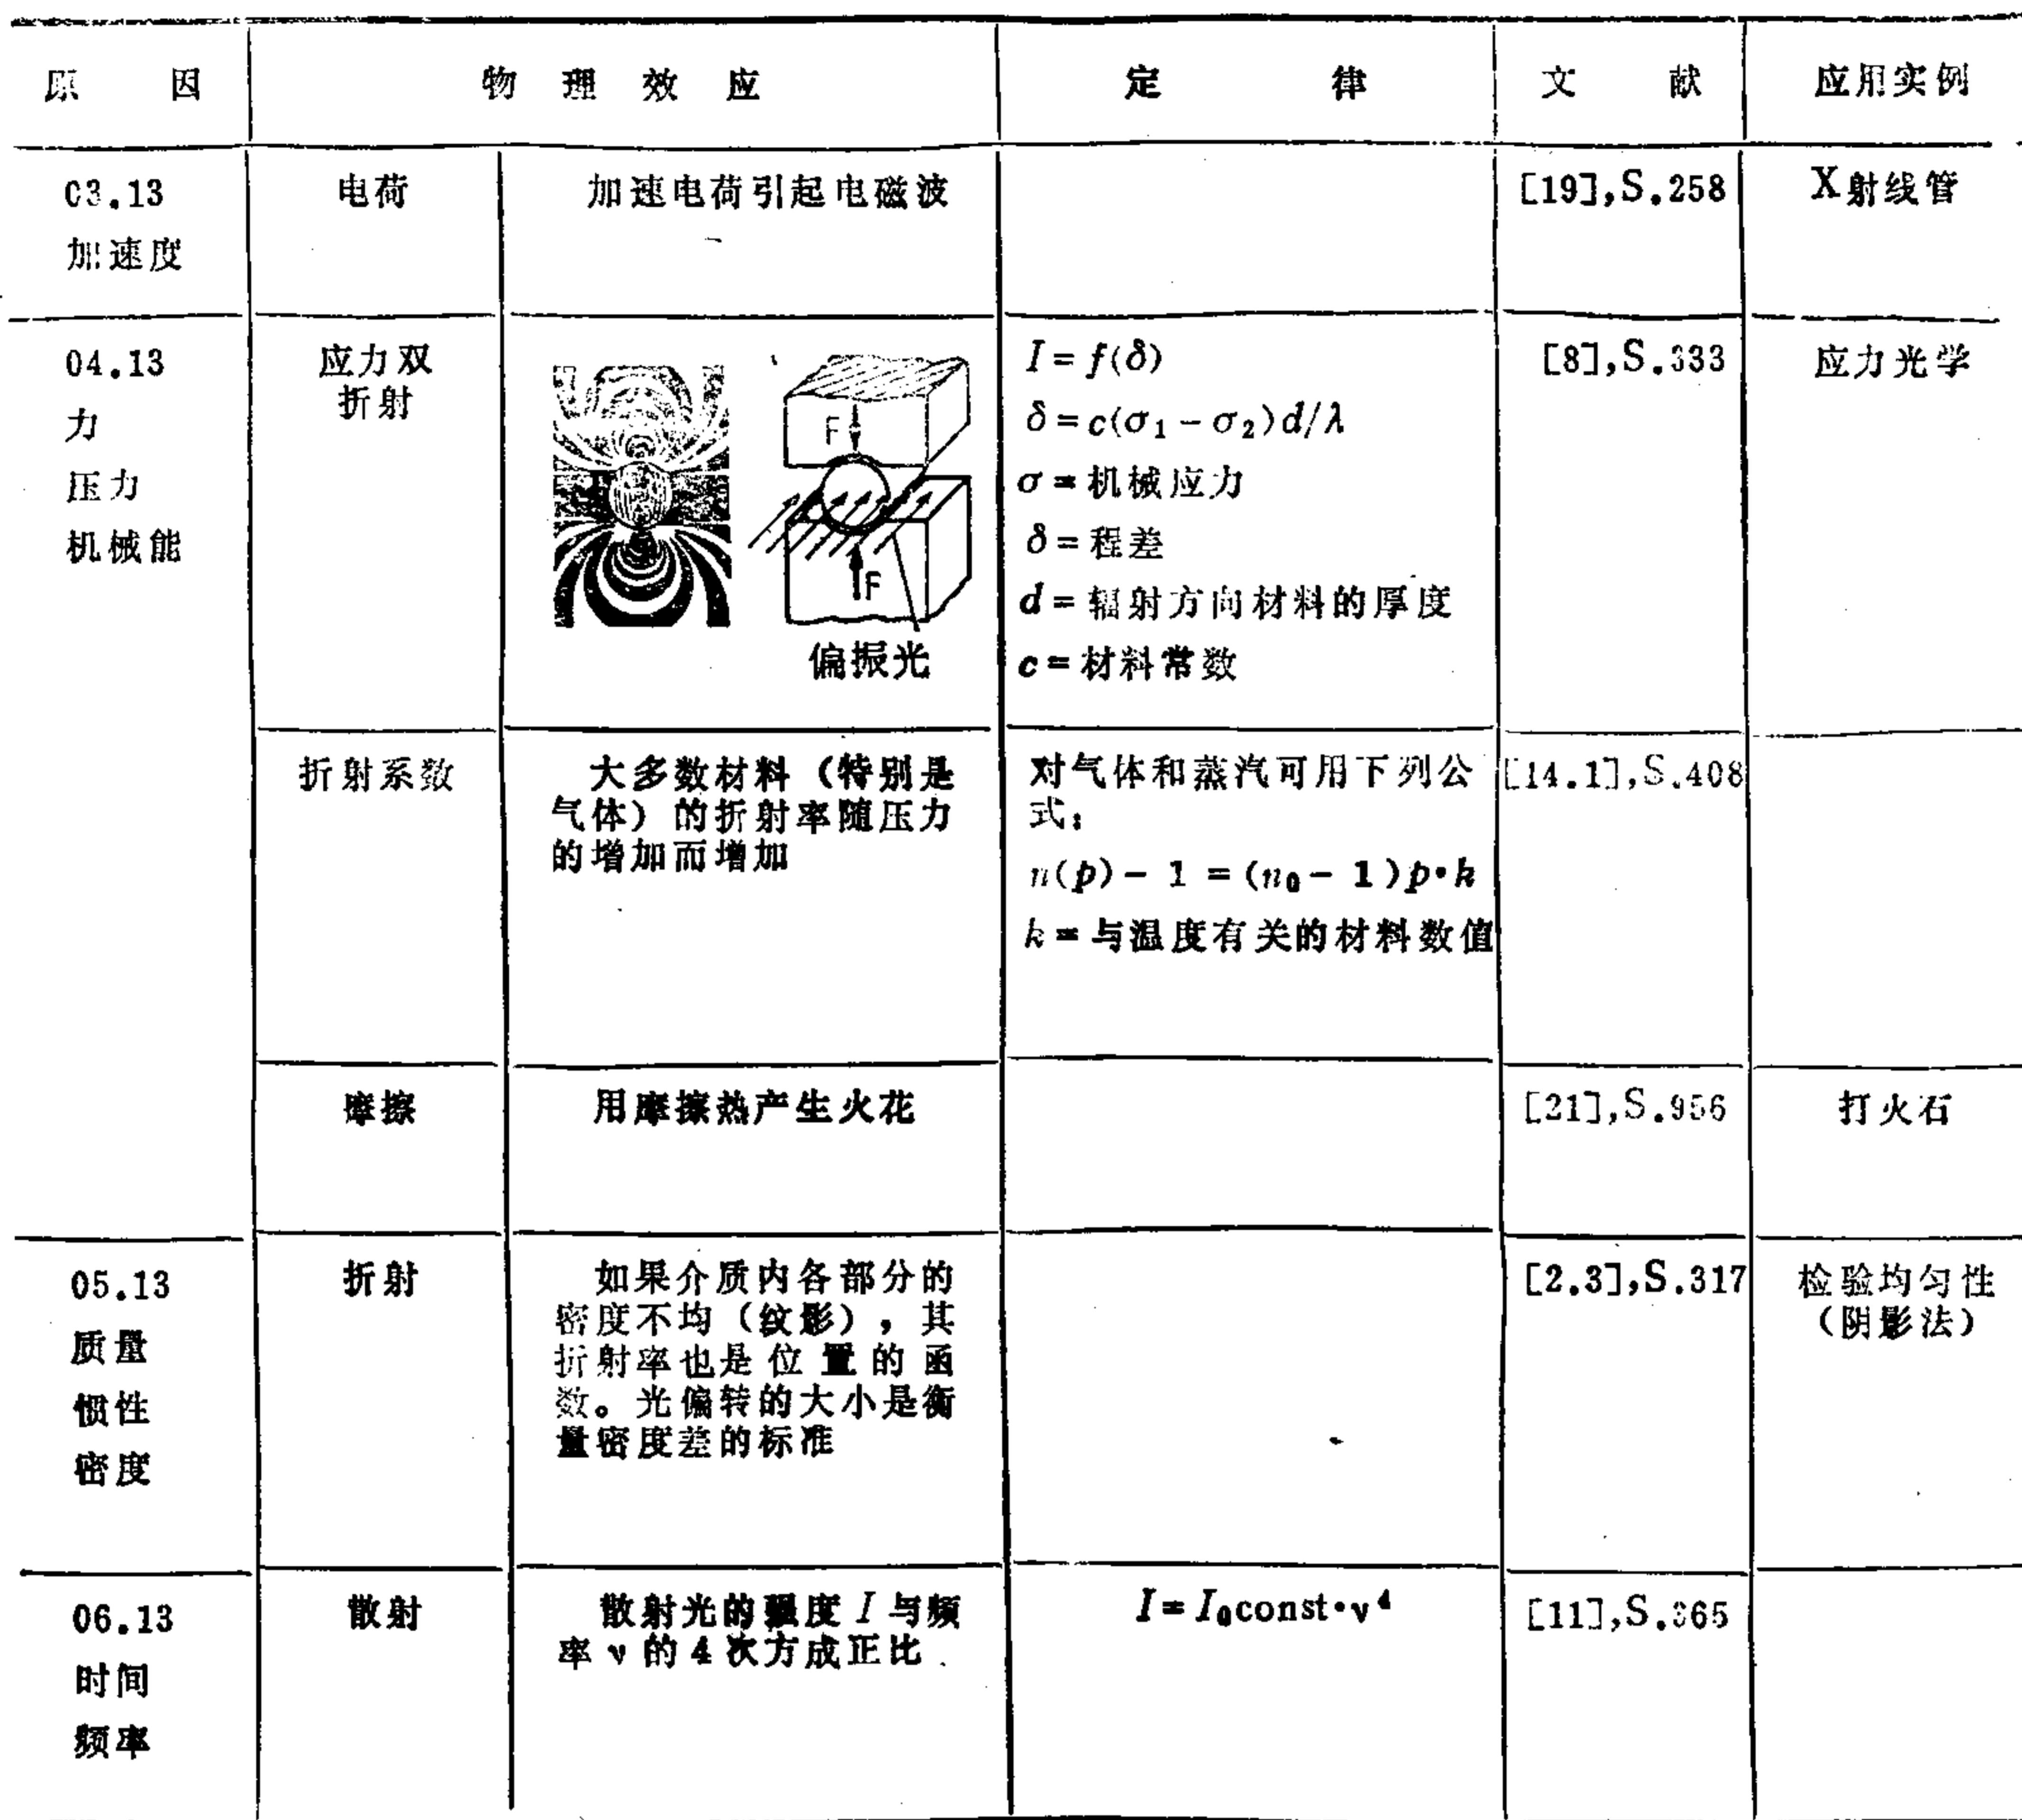 原 因 物 理 效 应 定 律 文 献 应用实例
03.13
加速度
电荷
加速电荷引起电磁波
[19],S.258
X射线管
04.13
力
压力
机械能
应力双
折射
F
F
偏振光
I = f(δ)
δ = c(σ₁ - σ₂)d/λ
σ = 机械应力
δ = 程差
d = 辐射方向材料的厚度
c = 材料常数
[8],S.333
应力光学
折射系数
大多数材料（特别是
气体）的折射率随压力
的增加而增加
对气体和蒸汽可用下列公
式：
n(p) - 1 = (n₀ - 1)p·k
k = 与温度有关的材料数值
[14.1],S.408
摩擦
用摩擦热产生火花
[21],S.956
打火石
05.13
质量
惯性
密度
折射
如果介质内各部分的
密度不均（纹影），其
折射率也是位置的函
数。光偏转的大小是衡
量密度差的标准
[2.3],S.317
检验均匀性
（阴影法）
06.13
时间
频率
散射
散射光的强度 I 与频
率 ν 的 4 次方成正比
I = I₀const·ν⁴
[11],S.365